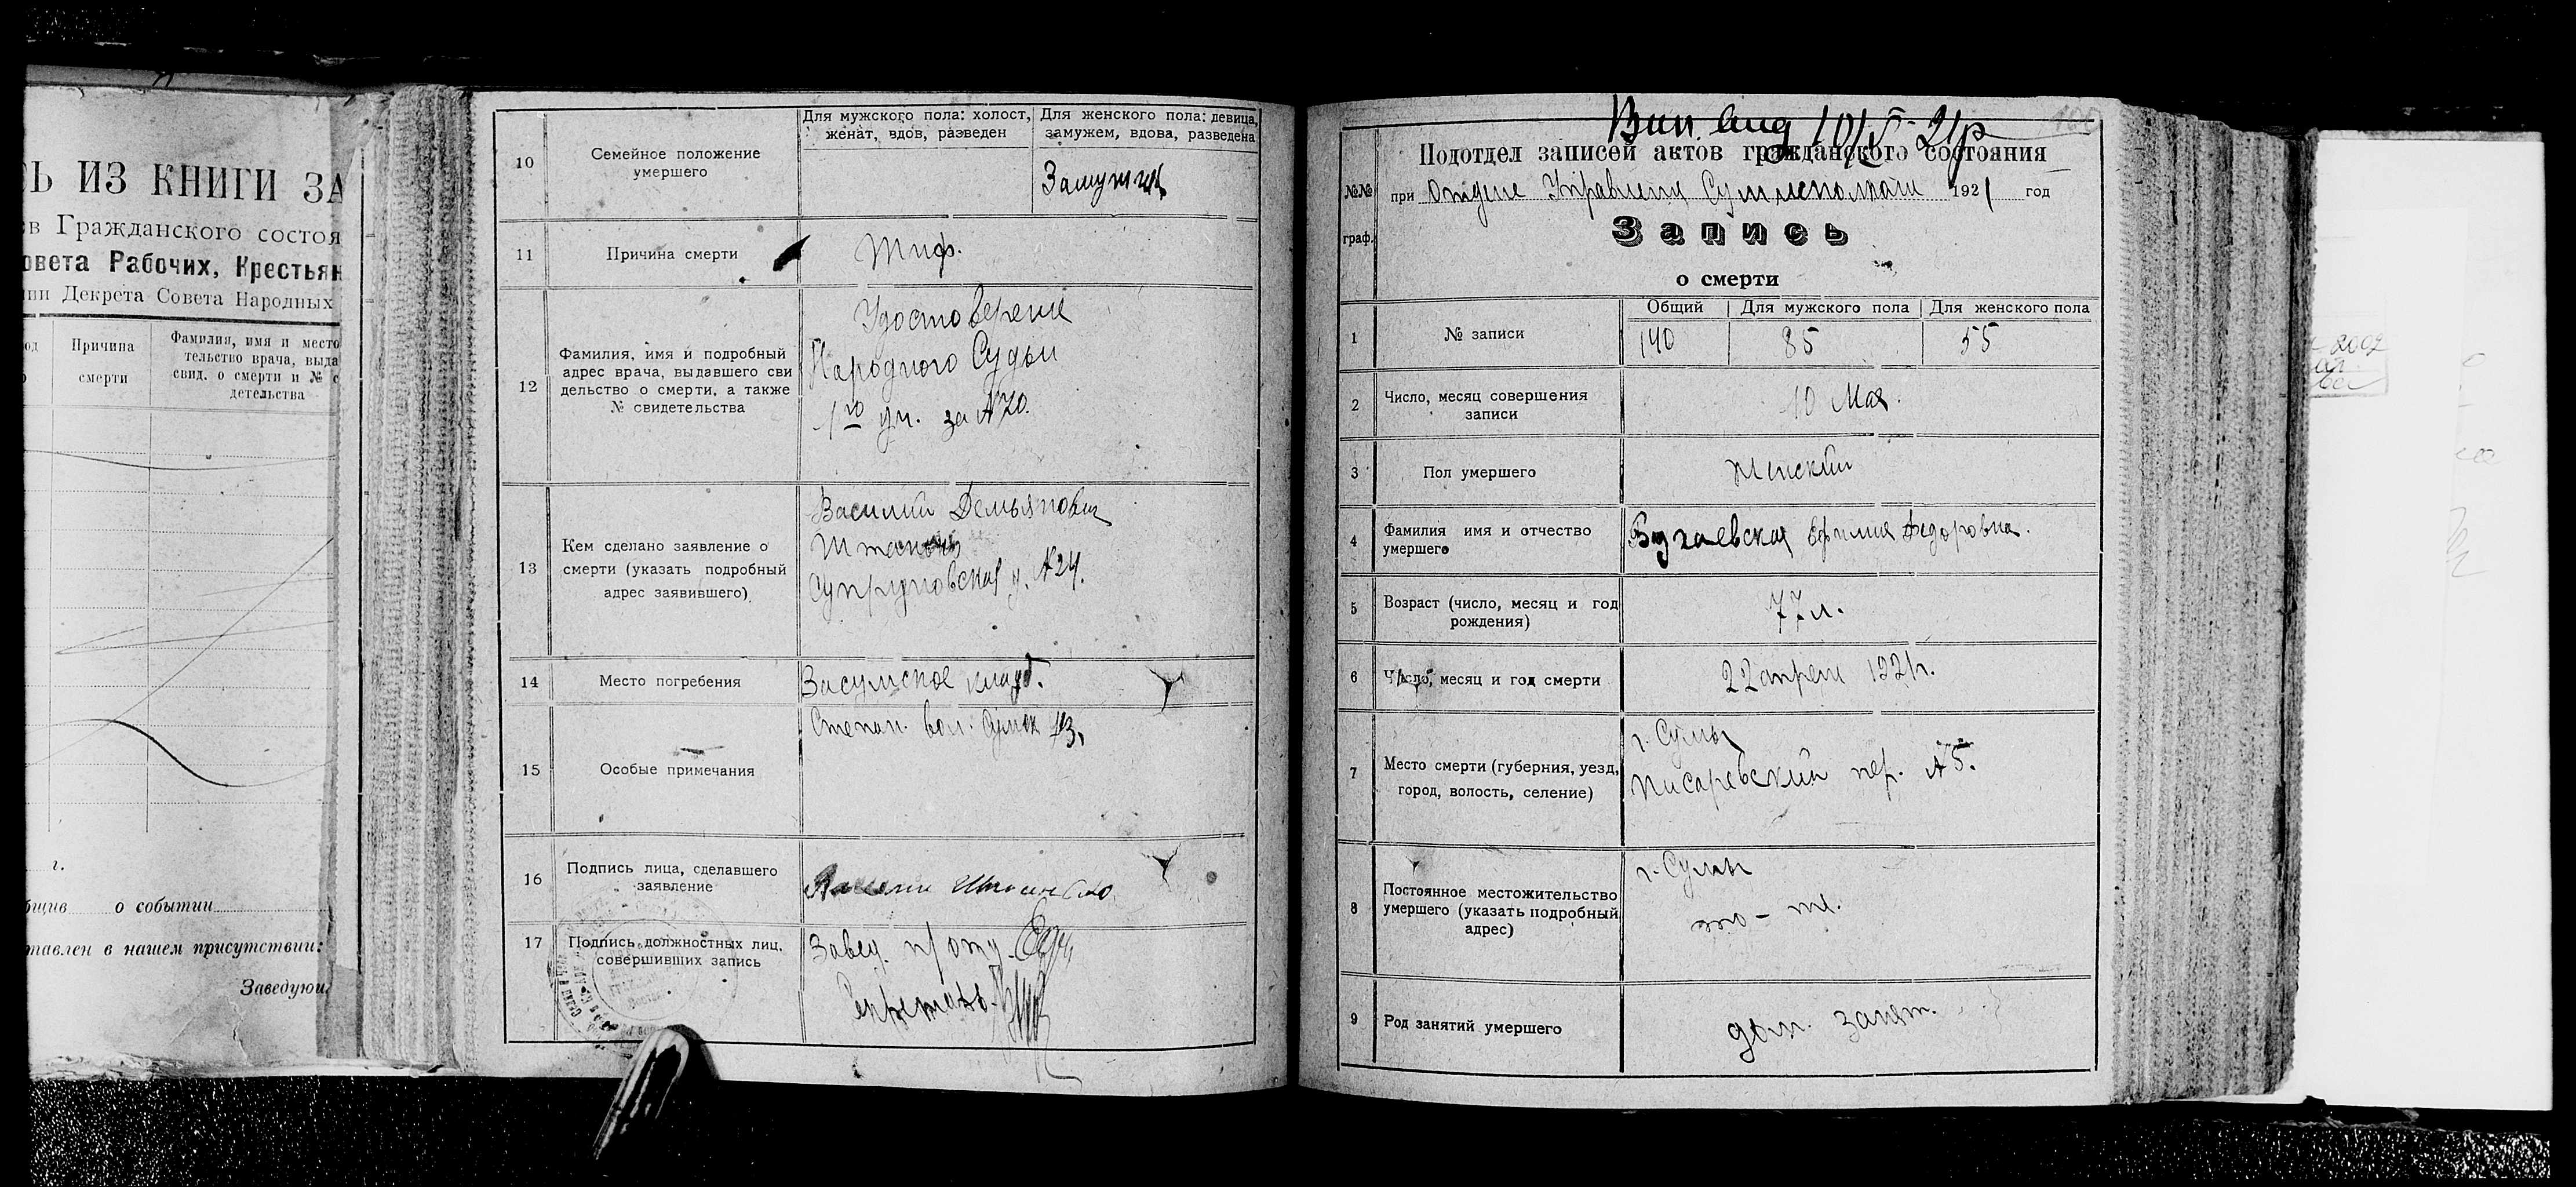 Ь ИЗ КНИГИ ЗА
в Гражданского состоя
овета Рабочих, Крестьян
ии Декрета Совета Народных
од
Причина
смерти
Фамилия, имя и место
тельство врача, выда
свид. о смерти и № с
детельства
г.
бщив о событии
тавлен в нашем присутствии:
Заведующ
10
Семейное положение
умершего
Для мужского пола: холост,
женат, вдов, разведен
Для женского пола: девица,
замужем, вдова, разведена
Замужняя
11
Причина смерти
Тиф.
12
Фамилия, имя и подробный
адрес врача, выдавшего сви
дельство о смерти, а также
№ свидетельства
Удостоверение
Народного Судьи
1го уч. за № 70.
13
Кем сделано заявление о
смерти (указать подробный
адрес заявившего)
Василий Демьянович
Супруновская у. № 24.
14
Место погребения
Засумское кладб.
15
Особые примечания
Степан. вол. Сумск уз.
16
Подпись лица, сделавшего
заявление
17
Подпись должностных лиц,
совершивших запись
Завед. п/отд.
Секретарь
Вып. 10/V-21г
Подотдел записей актов гражданского состояния
№№
граф.
при Отделе Управления Сумисполкома 1921 год
Запись
о смерти
1
№ записи
Общий
Для мужского пола
Для женского пола
140
85
55
2
Число, месяц совершения
записи
10 Мая.
3
Пол умершего
Женский
4
Фамилия имя и отчество
умершего
Бугаевская Ефимия Федоровна.
5
Возраст (число, месяц и год
рождения)
77 л.
6
Число, месяц и год смерти
22 апреля 1921 г.
7
Место смерти (губерния, уезд,
город, волость, селение)
г. Сумы
Писаревский пер. № 5.
8
Постоянное местожительство
умершего (указать подробный
адрес)
г. Сумы
то-же.
9
Род занятий умершего
дом. занят.